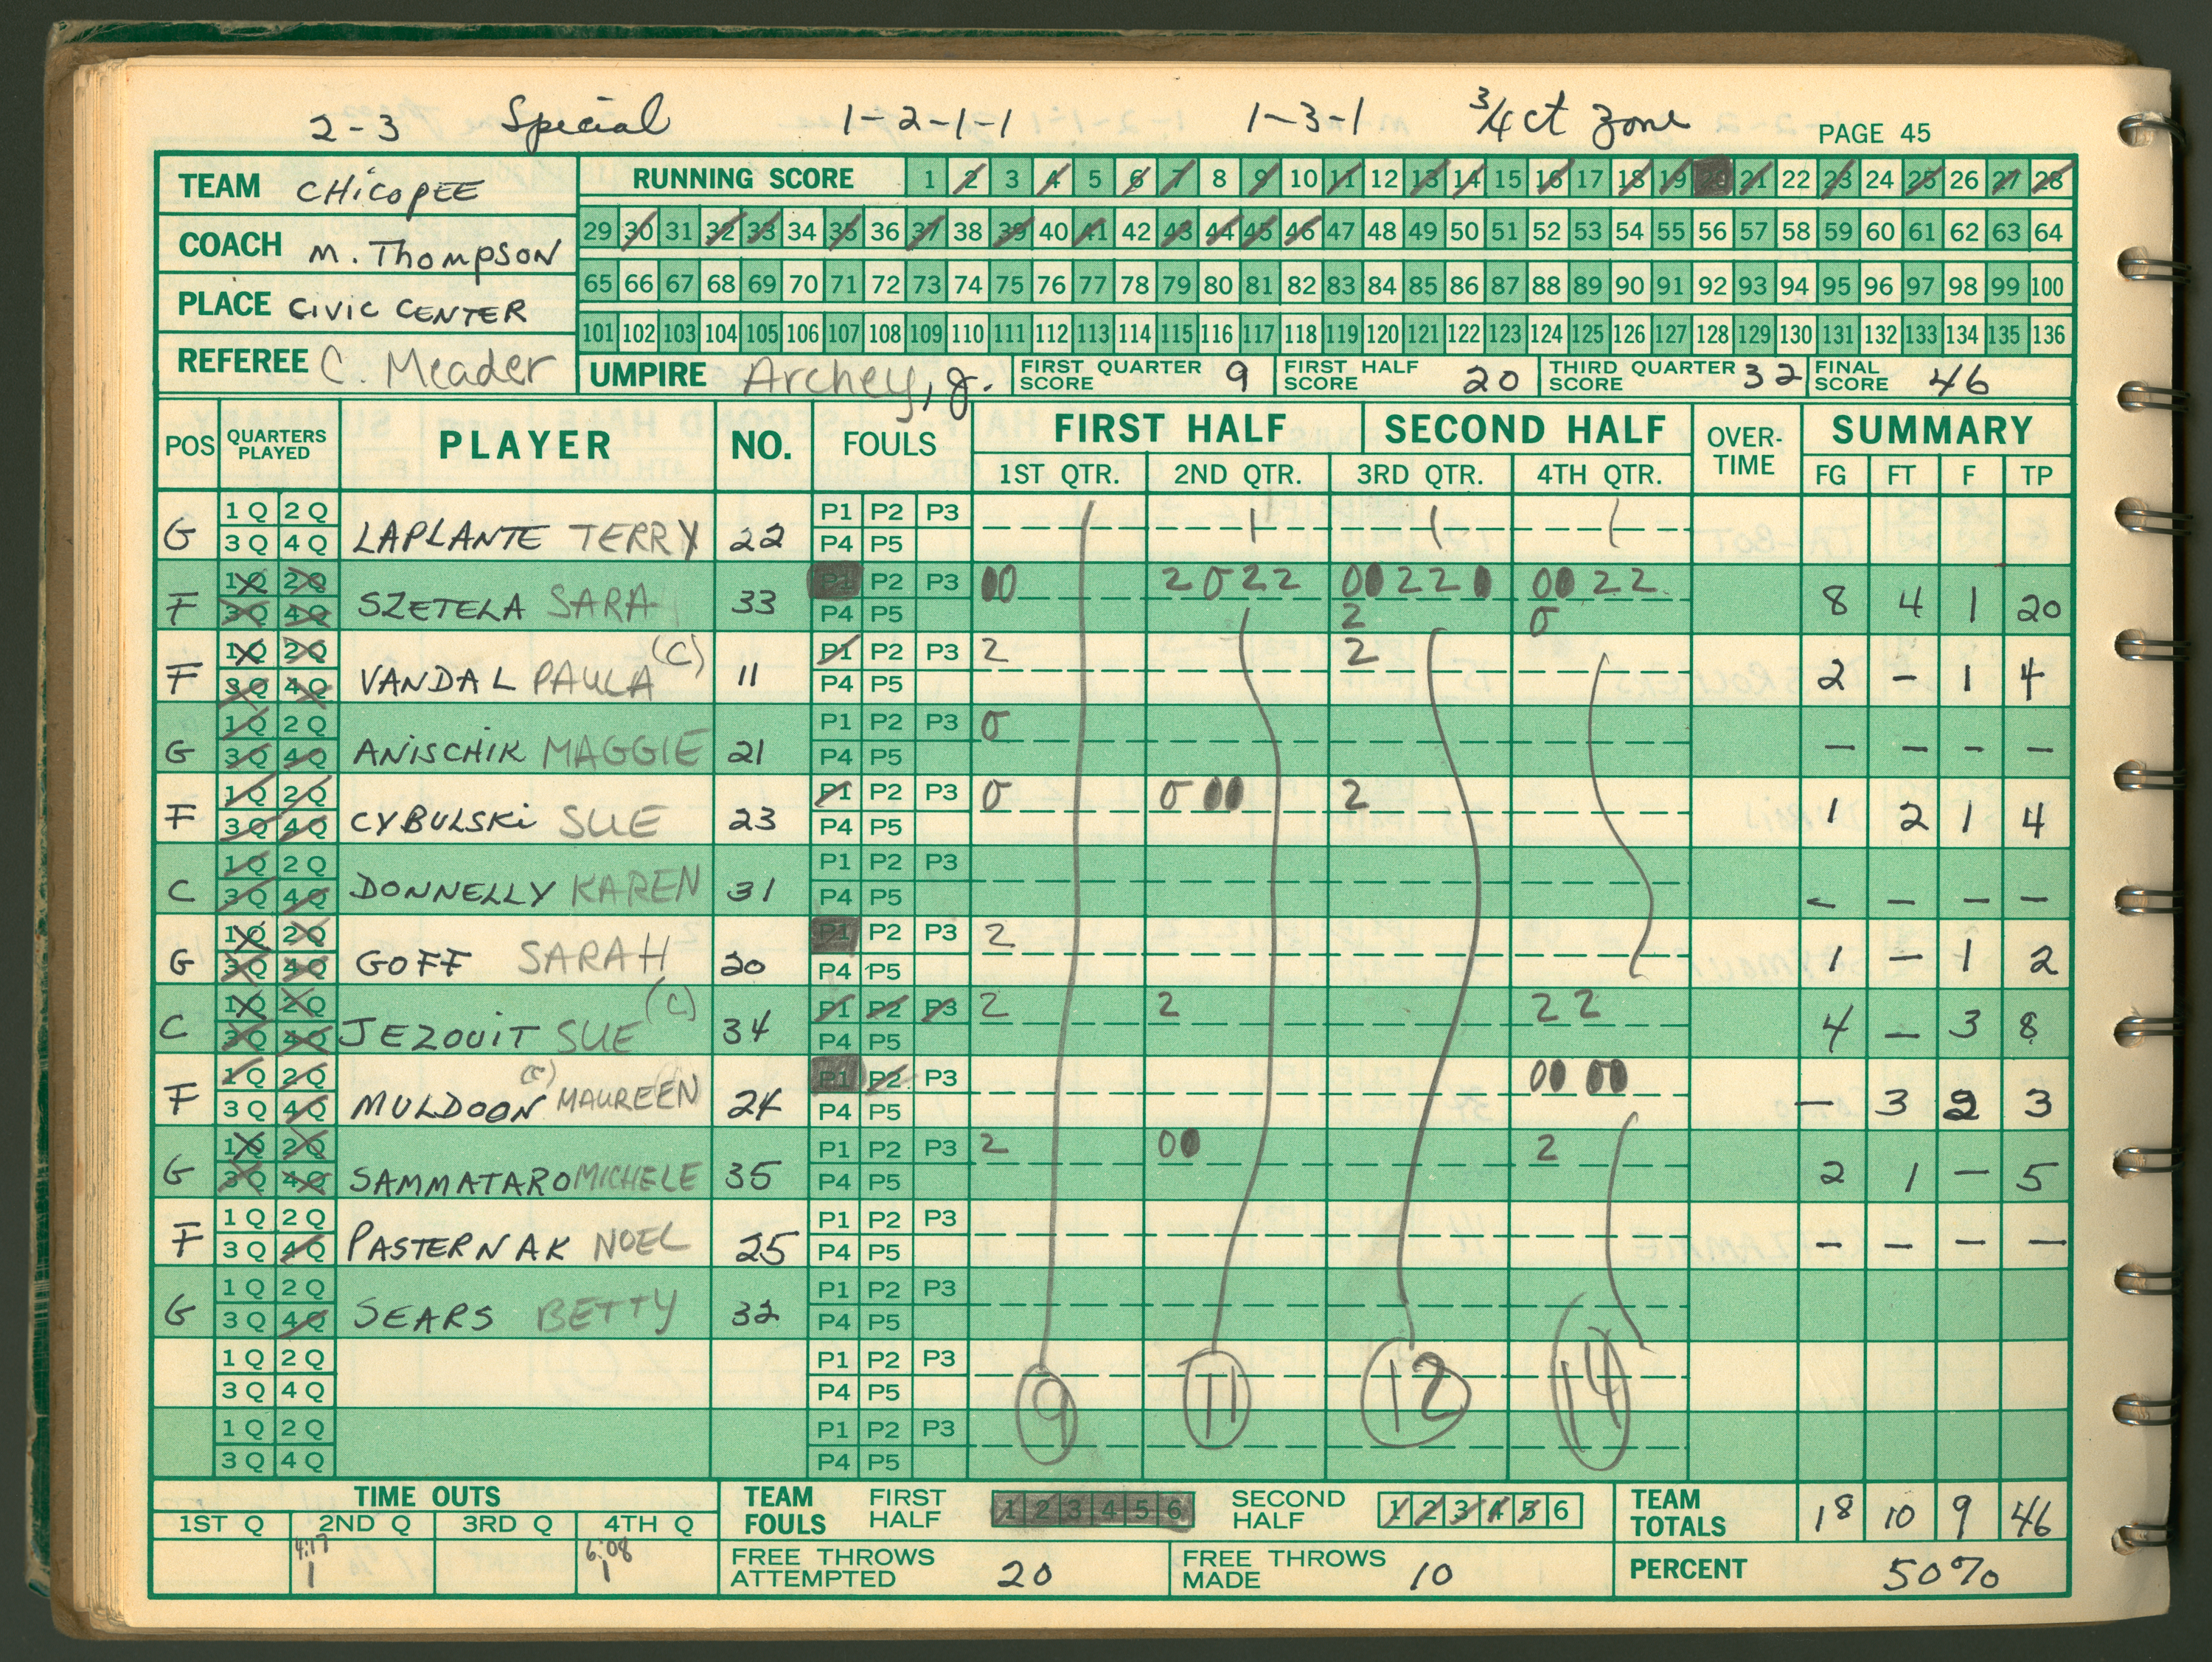 2-3 Special 1-2-1-1 1-3-1 3/4 ct zone PAGE 45
TEAM CHICOPEE
COACH M. THOMPSON
PLACE CIVIC CENTER
REFEREE C. Meader
RUNNING SCORE 1 2 3 4 5 6 7 8 9 10 11 12 13 14 15 16 17 18 19 20 21 22 23 24 25 26 27 28
29 30 31 32 33 34 35 36 37 38 39 40 41 42 43 44 45 46 47 48 49 50 51 52 53 54 55 56 57 58 59 60 61 62 63 64
65 66 67 68 69 70 71 72 73 74 75 76 77 78 79 80 81 82 83 84 85 86 87 88 89 90 91 92 93 94 95 96 97 98 99 100
101 102 103 104 105 106 107 108 109 110 111 112 113 114 115 116 117 118 119 120 121 122 123 124 125 126 127 128 129 130 131 132 133 134 135 136
UMPIRE Archey, Jr. FIRST QUARTER SCORE 9 FIRST HALF SCORE 20 THIRD QUARTER SCORE 32 FINAL SCORE 46
POS QUARTERS PLAYED PLAYER NO. FOULS FIRST HALF SECOND HALF OVER-TIME SUMMARY
1ST QTR. 2ND QTR. 3RD QTR. 4TH QTR. FG FT F TP
1 Q 2 Q P1 P2 P3
G 3 Q 4 Q LAPLANTE TERRY 22 P4 P5
1 Q 2 Q P1 P2 P3 00 2 0 2 2 00 2 2 0 00 2 2
F 3 Q 4 Q SZETELA SARA 33 P4 P5 2 0 8 4 1 20
1 Q 2 Q (C) P1 P2 P3 2 2
F 3 Q 4 Q VANDAL PAULA 11 P4 P5 2 - 1 4
1 Q 2 Q P1 P2 P3 0
G 3 Q 4 Q ANISCHIK MAGGIE 21 P4 P5 - - - -
1 Q 2 Q P1 P2 P3 0 0 00 2
F 3 Q 4 Q CYBULSKI SUE 23 P4 P5 1 2 1 4
1 Q 2 Q P1 P2 P3
C 3 Q 4 Q DONNELLY KAREN 31 P4 P5 - - - -
1 Q 2 Q P1 P2 P3 2
G 3 Q 4 Q GOFF SARAH 20 P4 P5 1 - 1 2
1 Q 2 Q (C) P1 P2 P3 2 2 2 2
C 3 Q 4 Q JEZOUIT SUE 34 P4 P5 4 - 3 8
1 Q 2 Q (C) P1 P2 P3 00 00
F 3 Q 4 Q MULDOON MAUREEN 24 P4 P5 - 3 2 3
1 Q 2 Q P1 P2 P3 2 00 2
G 3 Q 4 Q SAMMATARO MICHELE 35 P4 P5 2 1 - 5
1 Q 2 Q P1 P2 P3
F 3 Q 4 Q PASTERNAK NOEL 25 P4 P5 - - - -
1 Q 2 Q P1 P2 P3
G 3 Q 4 Q SEARS BETTY 32 P4 P5
1 Q 2 Q P1 P2 P3
3 Q 4 Q P4 P5
9 11 12 14
1 Q 2 Q P1 P2 P3
3 Q 4 Q P4 P5
TIME OUTS
1ST Q 2ND Q 3RD Q 4TH Q
4:17 6:08
1 1
TEAM FOULS FIRST HALF 1 2 3 4 5 6 SECOND HALF 1 2 3 4 5 6 TEAM TOTALS 18 10 9 46
FREE THROWS ATTEMPTED 20 FREE THROWS MADE 10 PERCENT 50%